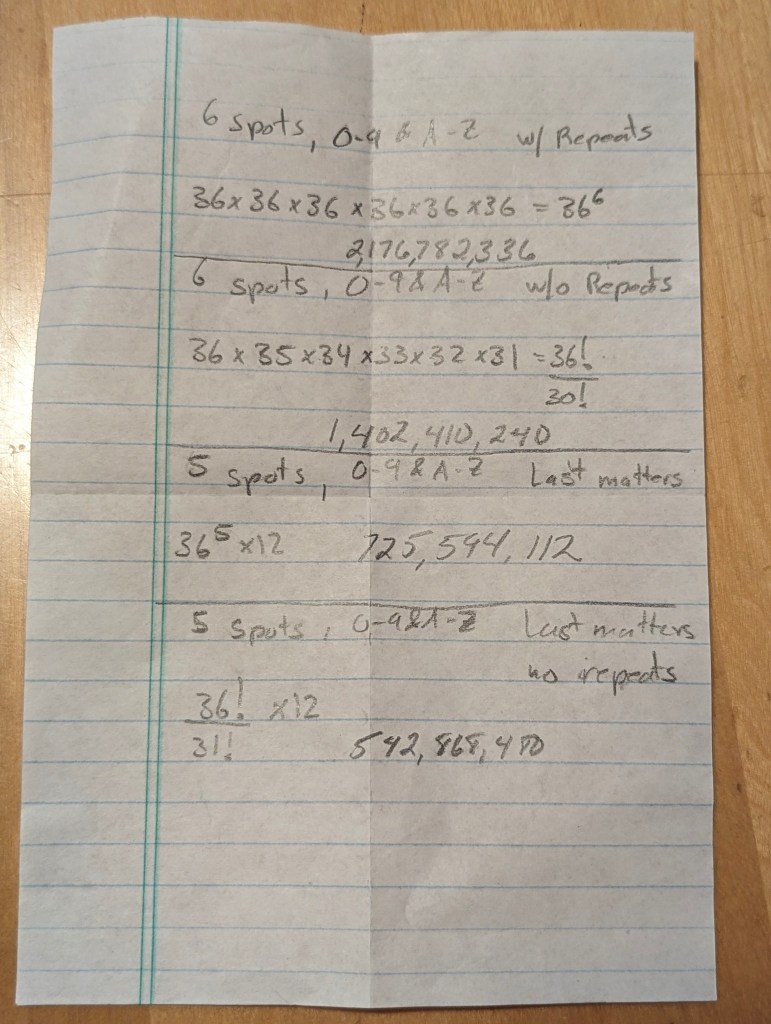 6 spots, 0-9 & A-Z w/ Repeats
36x36x36x36x36x36 = 36⁶
2,176,782,336
6 spots, 0-9 & A-Z w/o Repeats
36 x 35 x 34 x 33 x 32 x 31 = 36!
30!
1,402,410,240
5 spots, 0-9 & A-Z Last matters
36⁵ x12 725,594,112
5 spots, 0-9 & A-Z Last matters
no repeats
36! x12
31! 542,868,480